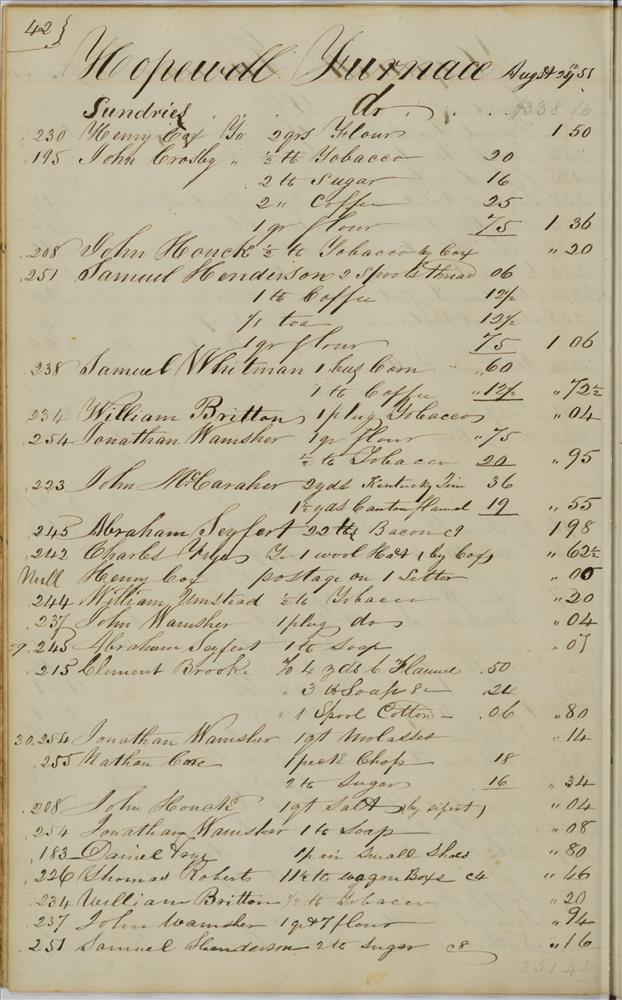 42
Hopewell Furnace Augst 28th 51
Sundries dr 338 16
230 Henry Cox To 2 qrs Flour 1 50
195 John Crosby " ½ lb Tobacco 20
2 lb Sugar 16
2 " Coffee 25
1 qr flour 75 1 36
208 John Houck ½ lb Tobacco by Cox " 20
251 Samuel Henderson 2 Spools thread 06
1 lb Coffee 12½
tea 12½
1 qr flour 75 1 06
238 Samuel Whitman 1 bus Corn " 60
1 lb Coffee " 12½ " 72½
234 William Britton 1 plug Tobacco " 04
254 Jonathan Wamsher 1 qr flour " 75
½ lb Tobacco 20 " 95
223 John McCaraher 2 yds Kentucky Jin 36
1½ yds Canton flannel 19 " 55
245 Abraham Seyfert 22 lbs Bacon c9 1 98
242 Charles Frye To 1 wool Hat (by Cox) " 62½
Null Henry Cox postage on 1 Letter " 05
244 William Umstead ½ lb Tobacco " 20
237 John Wamsher 1 plug do " 04
29 245 Abraham Seyfert 1 lb Soap " 07
215 Clement Brooke To 4 yds 6 Flannel .50
" 3 lb Soap 8c .24
" 1 Spool Cotton .06 " 80
30 254 Jonathan Wamsher 1 qt Molasses " 14
255 Nathan Care 1 peck Chop 18
2 lb Sugar 16 " 34
208 John Houck 1 qt Salt (by sifert) " 04
254 Jonathan Wamsher 1 lb Soap " 08
183 Daniel Frye 1 pair Small Shoes " 80
226 Thomas Roberts 11½ lb wagon Boxes c4 " 46
234 William Britton ½ lb Tobacco " 20
237 John Wamsher 1 qr & 7 flour " 94
251 Samuel Henderson 2 lb Sugar c8 " 16
351 42